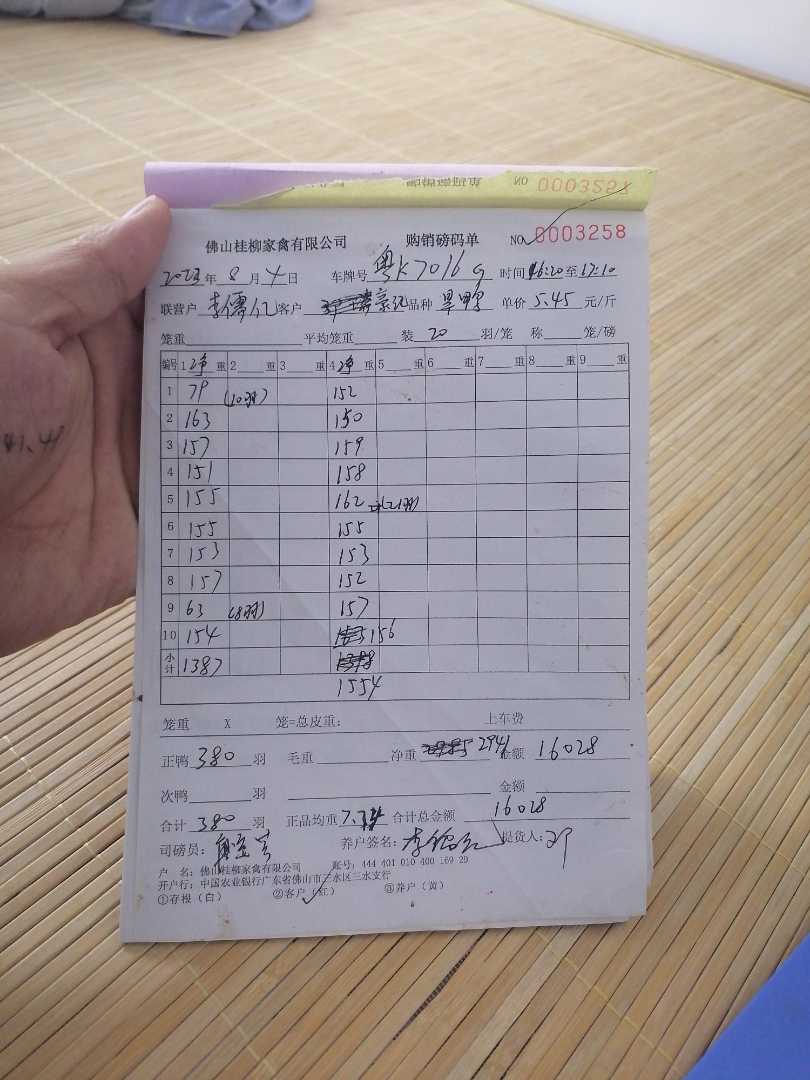 NO 0003257
佛山桂柳家禽有限公司 购销磅码单 NO. 0003258
2023年 8 月 4 日 车牌号 粤K7016G 时间 16:20 至 17:10
联营户 李儒亿 客户 豪记 品种 旱鸭 单价 5.45 元/斤
笼重 平均笼重 装 20 羽/笼 称 笼/磅
编号 1 净 重 2 重 3 重 4 净 重 5 重 6 重 7 重 8 重 9 重
1 79 (10羽) 152
2 163 150
3 157 159
4 151 158
5 155 162 (21羽)
6 155 155
7 153 153
8 157 152
9 63 (8羽) 157
10 154 156
小计 1387
1554
笼重 X 笼=总皮重: 上车费
正鸭 380 羽 毛重 净重 2941 金额 16028
次鸭 羽 金额
合计 380 羽 正品均重 合计总金额 16028
司磅员: 养户签名: 李儒亿 提货人: 邓
户 名: 佛山桂柳家禽有限公司 账号: 444 401 010 400 169 29
开户行: 中国农业银行广东省佛山市三水区三水支行
①存根(白) ②客户(红) ③养户(黄)